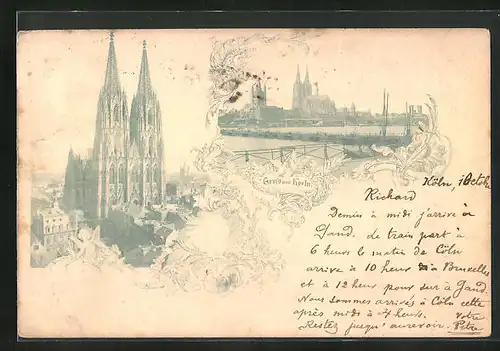 Gruss aus Koeln.
Köln, 1 Octob
Richard
Demain à midi j'arrive à
Gand. de train part à
6 heurs le matin de Cöln
arrive à 10 heur à Bruxelles
et à 12 heur pour sur à Gand.
Nous sommes arrivés à Cöln cette
après midi à 4 heurs. votre
Restez jusqu' aurevoir.